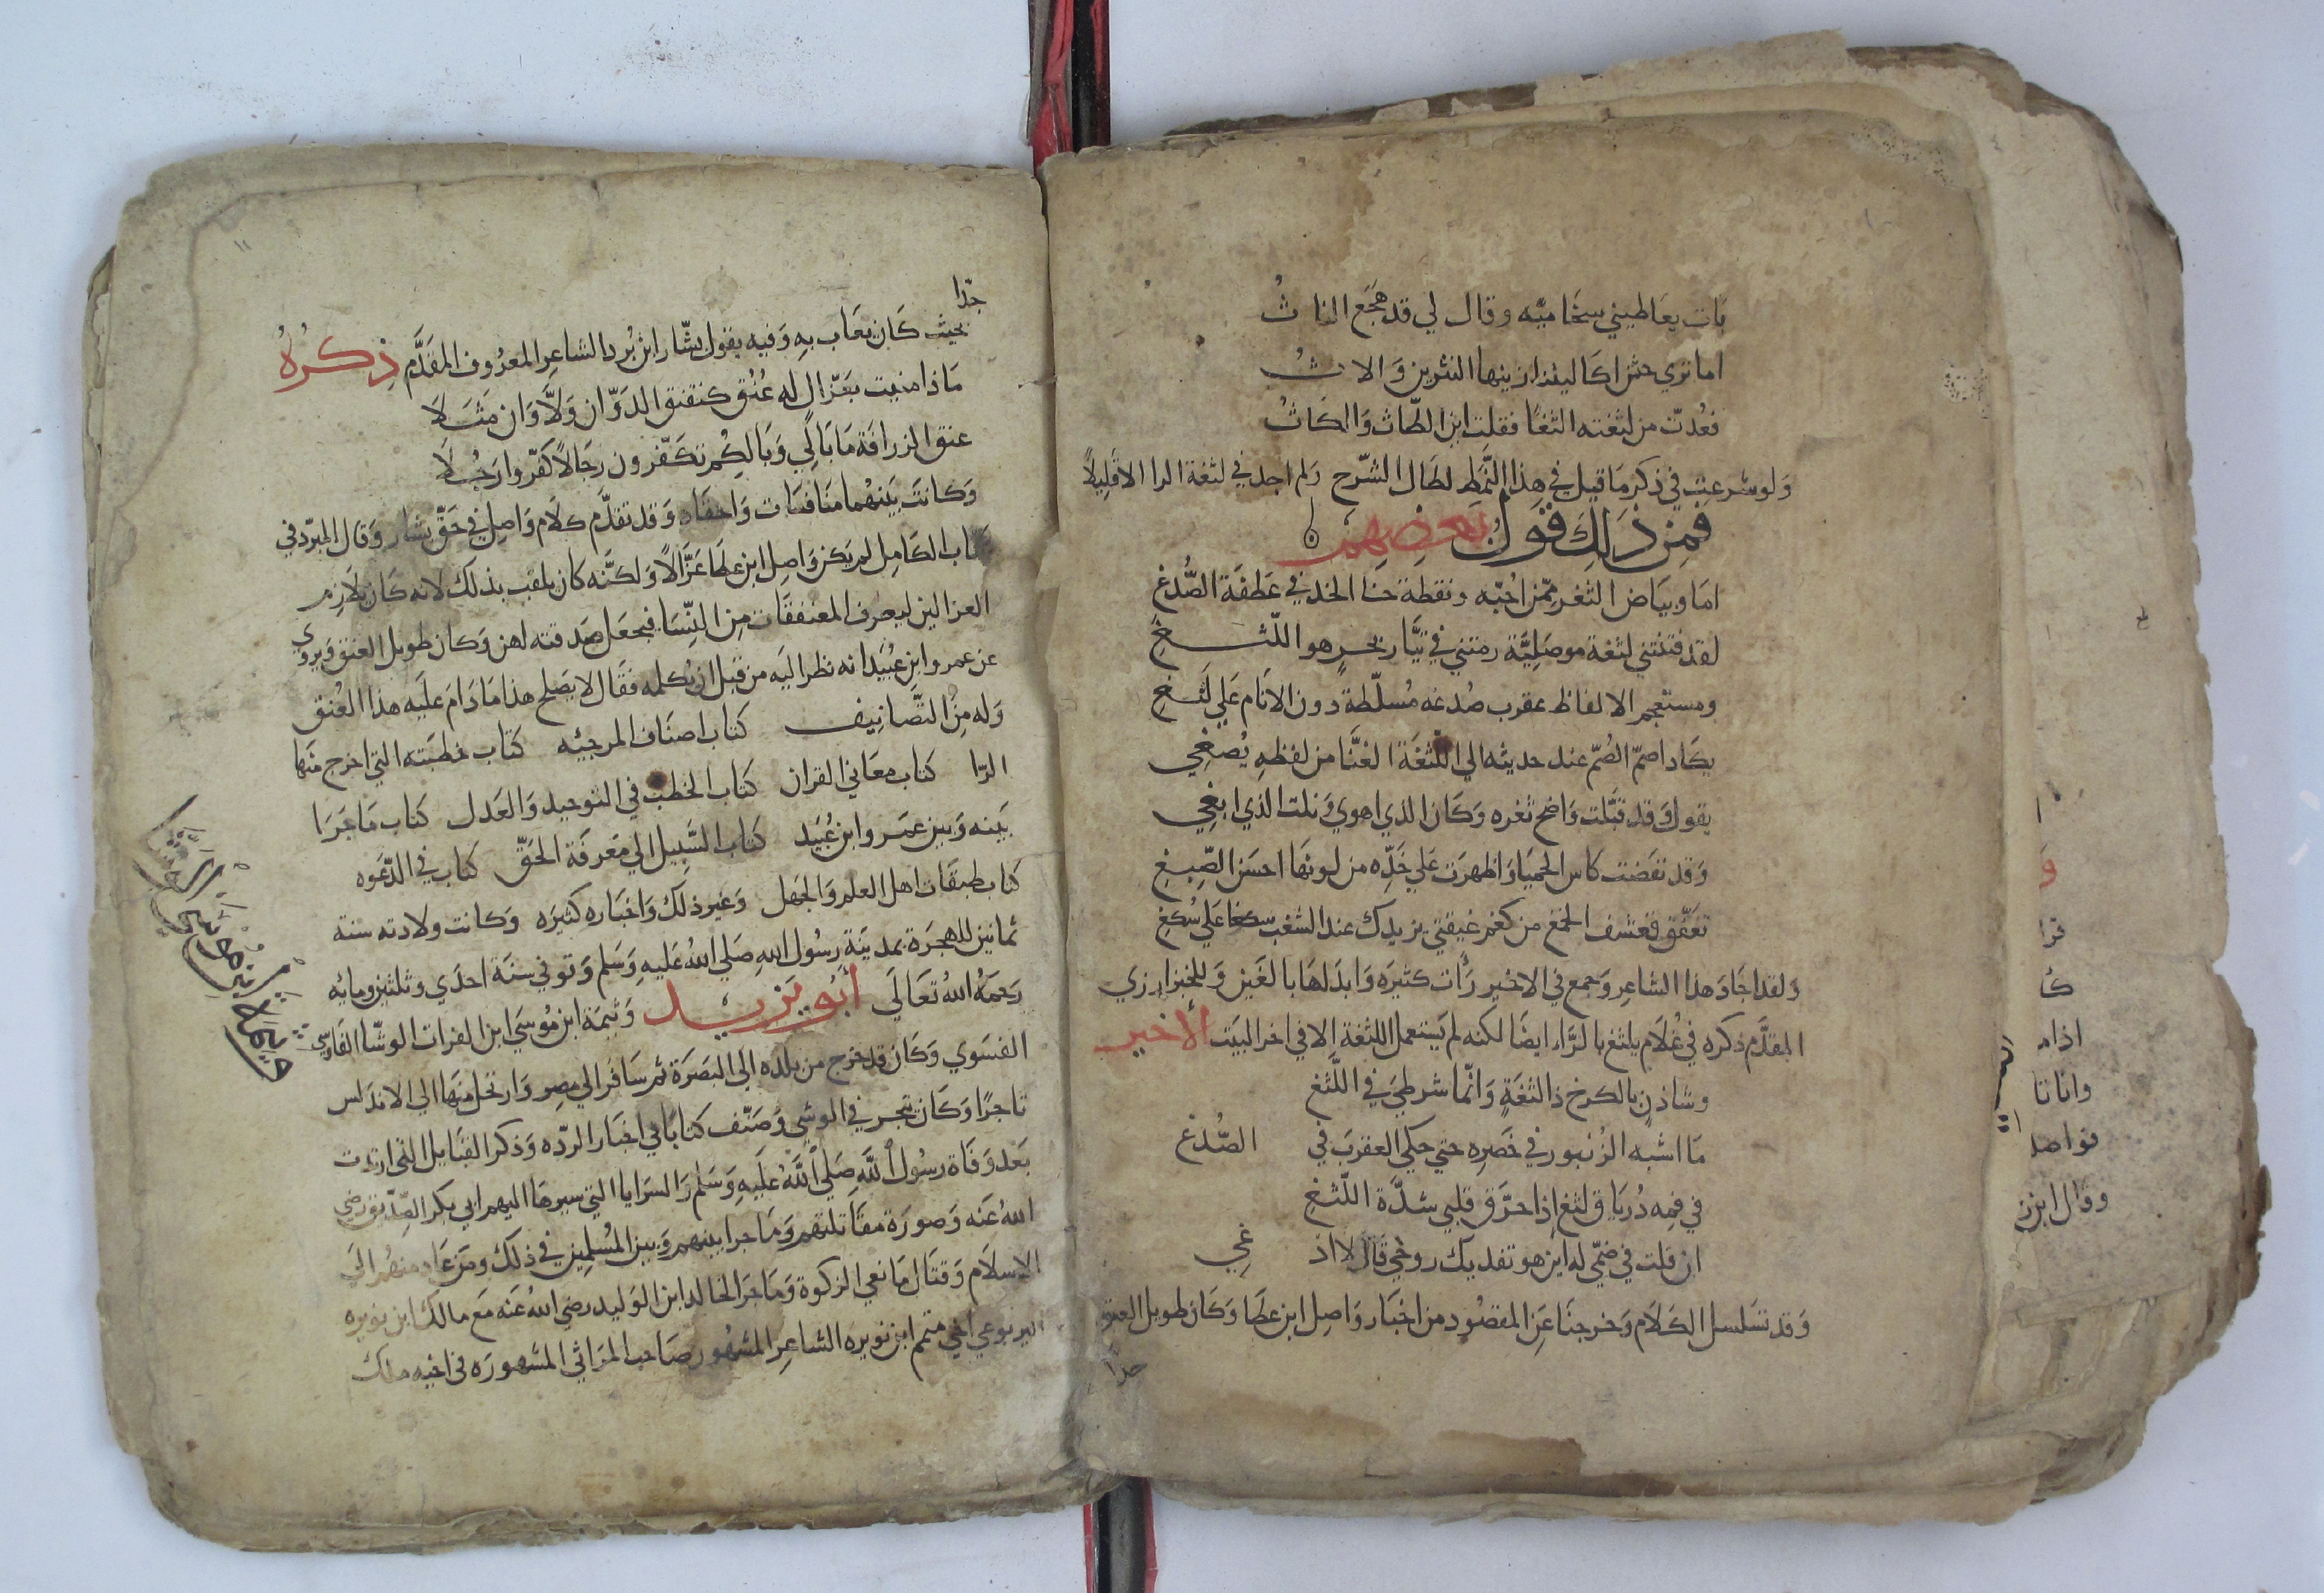 بات يعاطيني سخاميّه وقال لي قد هجع الناث
اما تري حثن اكاليلنا زينها النثرين والاث
فعُدتّ من لثغته الثغًا فقلت اين الطّاث والكاث
ولو شرعت في ذكر ما قيل في هذا النَّمَطِ لطال الشّرح ولم اجد في لثغة الرا الا قليلاً
فمِن ذَلِكَ قَولُ بعضِهِم
اما وبياض الثغر ممّن احُبّه ونقطة خال الخد في عَطفَة الصُّدغ
لقد فتنتني لثغة موصَليَّة رمتني في تيَّار بحرٍ هو اللّثغ
ومستعجم الالفاظ عقرب صُدغه مُسلّطة دون الانام عَلي لَثغ
يكاد اصمّ الصُمّ عند حديثه الي اللثغَة الغنّا من لفظهِ يُصغي
يقول وَقد قبَّلت وَاضح ثغره وَكان الذي اهوي وَنلت الذي ابغي
وَقد نفضت كاس الحميا وَاظهرَت عَلي خَدِّه من لونها احسَن الصِّبغ
تغَفّق فغشف الخمغ من كغم غيقتي يزيدك عند الشغب سكغا عَلي سُكغ
ولقد اجادَ هذا الشاعِر وَجمع في الاخير رأات كثيرَه وَابدَلهَا بالغَين وَللخبزارزي
المقدَّم ذكره في غُلام يلثغ بالرَّاء ايضا لكنه لم يَستعمل اللثغَة الا في اخر البيَت الأخير
وشاذن بالكرخ ذا لثغَةٍ وَانّما شرطيَ في اللّثغ
مَا اشبه الزُنبور في خَصرِه حتي حكي العقربَ في الصُّدغ
في فمِه دُرياق لثغ إذا حرّق قلبي شدَّة اللّثغ
ان قلت في ضمّي له اين هو تفديك روحي قالَ لا اد غي
وَقد تسَلسل الكَلام وَخرجنَا عَنِ المقصُود من اخبَار وَاصِل ابن عطَا وَكان طويل العنق
جدًّا
جدّا
بحيث كَان يعَاب بهِ وَفيه يقول بشّار ابن بُرد الشاعِر المعرُوف المقَدَّم ذِكرُهُ
مَاذا منيت بغَزّال له عُنُق كنقنق الدوّ ان وَلّا وَان مَثلا
عنق الزرافَة مَا بَالي وَبَالكُم تكَفّرون رجَالاً كفّروا رَجُلا
وَكانت بَينهُما منَافسَات وَاحقَاد وَقد تقدَّم كلَام وَاصِل في حَقّ بشار وَقال المبرّد في
كتاب الكامِل لم يكن وَاصِل ابن عطَا غَزّالاً وَلكنَّه كان يلقب بذلك لانه كَان يلازم
الغزالين ليعرف المتعففَات مِن النِّسَا فيجعَل صَدقته لهن وَكان طويل العنق وَيروي
عن عمرو ابن عُبَيد انه نظر اليَه من قبل ان يكلمه فقَال لا يصَلح هذا مَا دَام علَيه هذا العُنق
وَله مِنَ التَّصَانيف كتاب اصنَاف المرجيَه كتَاب خطبَته التي اخرج منهَا
الرّا كتاب معَاني القران كتَاب الخطب في التوحيد وَالعَدل كتاب مَا جَرَا
بَينه وَبين عمَرو ابن عُبَيد كتاب السَّبيل الي مَعرفَة الحَقّ كتاب في الدّعوَه
كتاب طبقَات اهل العلم وَالجهل وَغير ذلك وَاخبَاره كثيرَه وَكانت ولادته سنة
ثمانين للهجرَة بمدينَة رسُول اللهِ صَلي اللهُ عَليهِ وَسَلم وَتوفي سنَة احدَي وثلثين ومايه
رَحمَهُ اللهُ تعَالَي أبو يزيد وَثيمَة ابن مُوسَي ابن الفرات الوشّا الفَارسِي
الفسَوي وَكَان قد خرج من بلده الي البَصرَة ثم سَافر الي مصِر وَارتحل منهَا الي الاندَلس
تاجرًا وَكَان يتجر في الوشي وَصَنّف كتابًا في اخبَار الردّه وَذكر القبَايل التي ارتدت
بَعد وَفاة رسُول اللهِ صَلي اللهُ علَيهِ وَسَلم وَالسرَايا التي سيرهَا اليهم ابي بكر الصِّدّيق رضي
اللهُ عَنه وَصورَة مقَاتلتهم وَمَا جرا بينهم وَبين المُسلِمين في ذلك ومَن عَاد منهُم الي
الاسلَام وَقتَال مَانعي الزكوة وَمَا جرَا لخالد ابن الوَليد رضي اللهُ عَنه مَع مالك ابن نويره
اليربوعي اخي متمم ابن نويره الشاعِر المشهُور صَاحب المرَاثي المشهورَه في اخيه مالك
ا
وَ
قرا
ك
اذام
واناتا
فواصل
وقال ابن